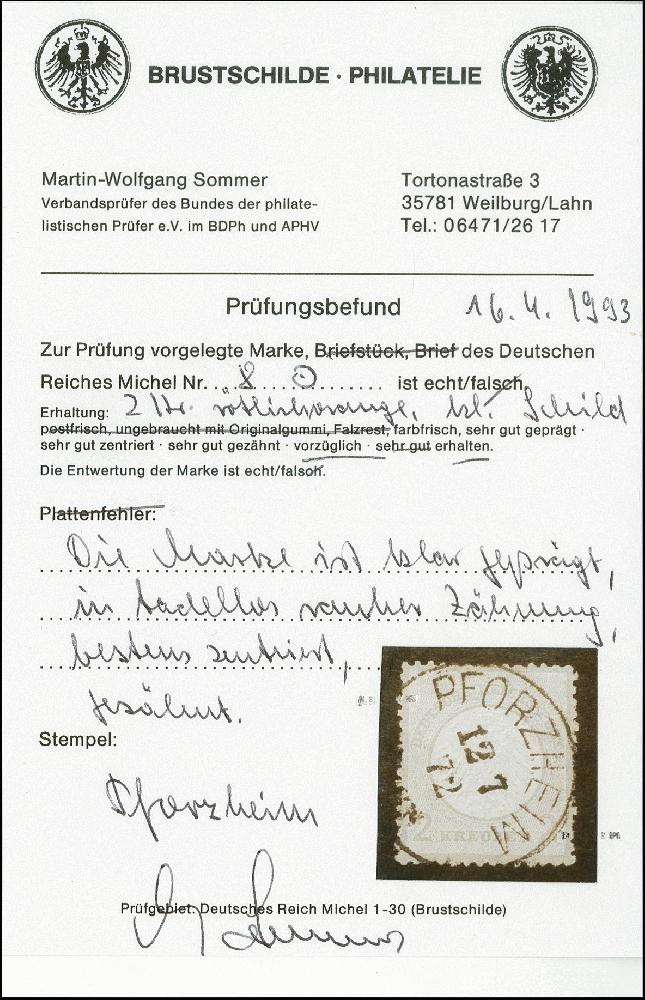 BRUSTSCHILDE · PHILATELIE
Martin-Wolfgang Sommer
Verbandsprüfer des Bundes der philate-
listischen Prüfer e.V. im BDPh und APHV
Tortonastraße 3
35781 Weilburg/Lahn
Tel.: 06471/26 17
Prüfungsbefund 16.4.1993
Zur Prüfung vorgelegte Marke, Briefstück, Brief des Deutschen
Reiches Michel Nr. . . 8 ⊙ . . . . . . . ist echt/falsch.
Erhaltung: 2 Kr. rötlichorange, kl. Schild
postfrisch, ungebraucht mit Originalgummi, Falzrest, farbfrisch, sehr gut geprägt ·
sehr gut zentriert · sehr gut gezähnt · vorzüglich · sehr gut erhalten.
Die Entwertung der Marke ist echt/falsch.
Plattenfehler:
Die Marke ist klar geprägt,
in tadellos rauher Zähnung,
bestens zentriert,
gezähnt.
Stempel:
Pforzheim
PFORZHEIM
12 7
72
2 KREUZER
Prüfgebiet: Deutsches Reich Michel 1-30 (Brustschilde)
Sommer